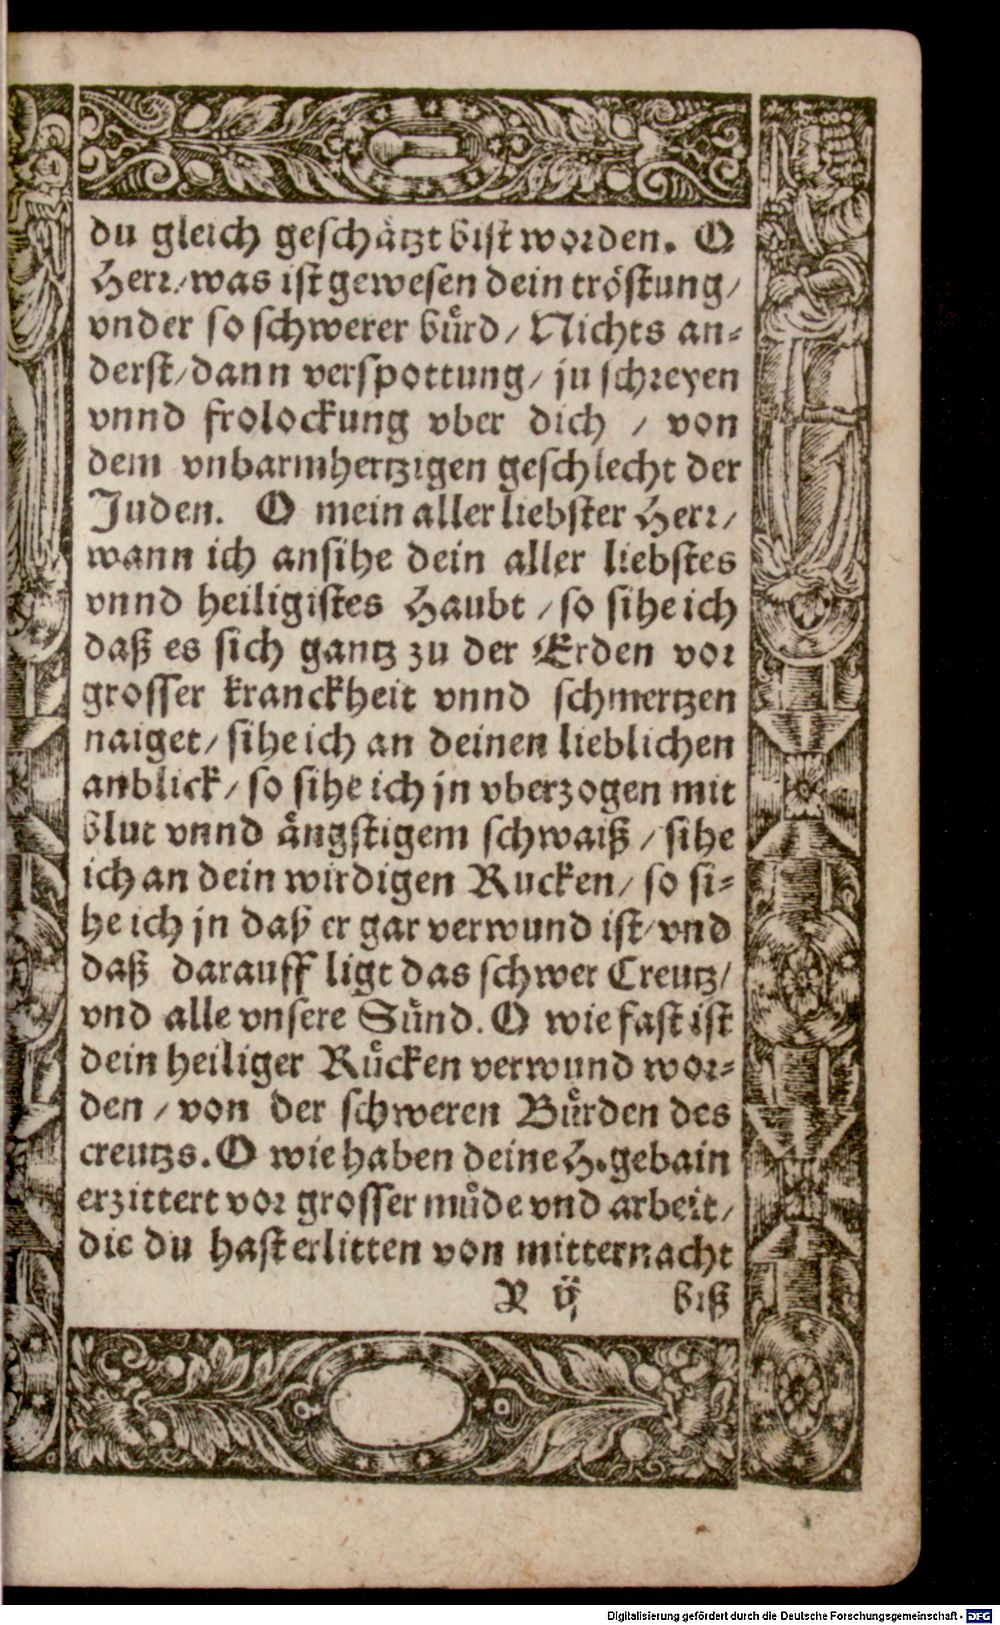 du gleich geschätzt bist worden. O
Herr/was ist gewesen dein tröstung/
vnder so schwerer bürd/ Nichts an-
derst/dann verspottung/ ju schreyen
vnnd frolockung vber dich / von
dem vnbarmhertzigen geschlecht der
Juden. O mein aller liebster Herr/
wann ich ansihe dein aller liebstes
vnnd heiligistes Haubt / so sihe ich
daß es sich gantz zu der Erden vor
grosser kranckheit vnnd schmertzen
naiget/ sihe ich an deinen lieblichen
anblick/ so sihe ich jn vberzogen mit
blut vnnd ängstigem schwaiß / sihe
ich an dein wirdigen Rucken/ so si-
he ich jn daß er gar verwund ist/vnd
daß darauff ligt das schwer Creutz/
vnd alle vnsere Sünd. O wie fast ist
dein heiliger Rücken verwund wor-
den / von der schweren Bürden des
creutzs. O wie haben deine H. gebain
erzittert vor grosser müde vnd arbeit/
die du hast erlitten von mitternacht
R ij biß
Digitalisierung gefördert durch die Deutsche Forschungsgemeinschaft - DFG